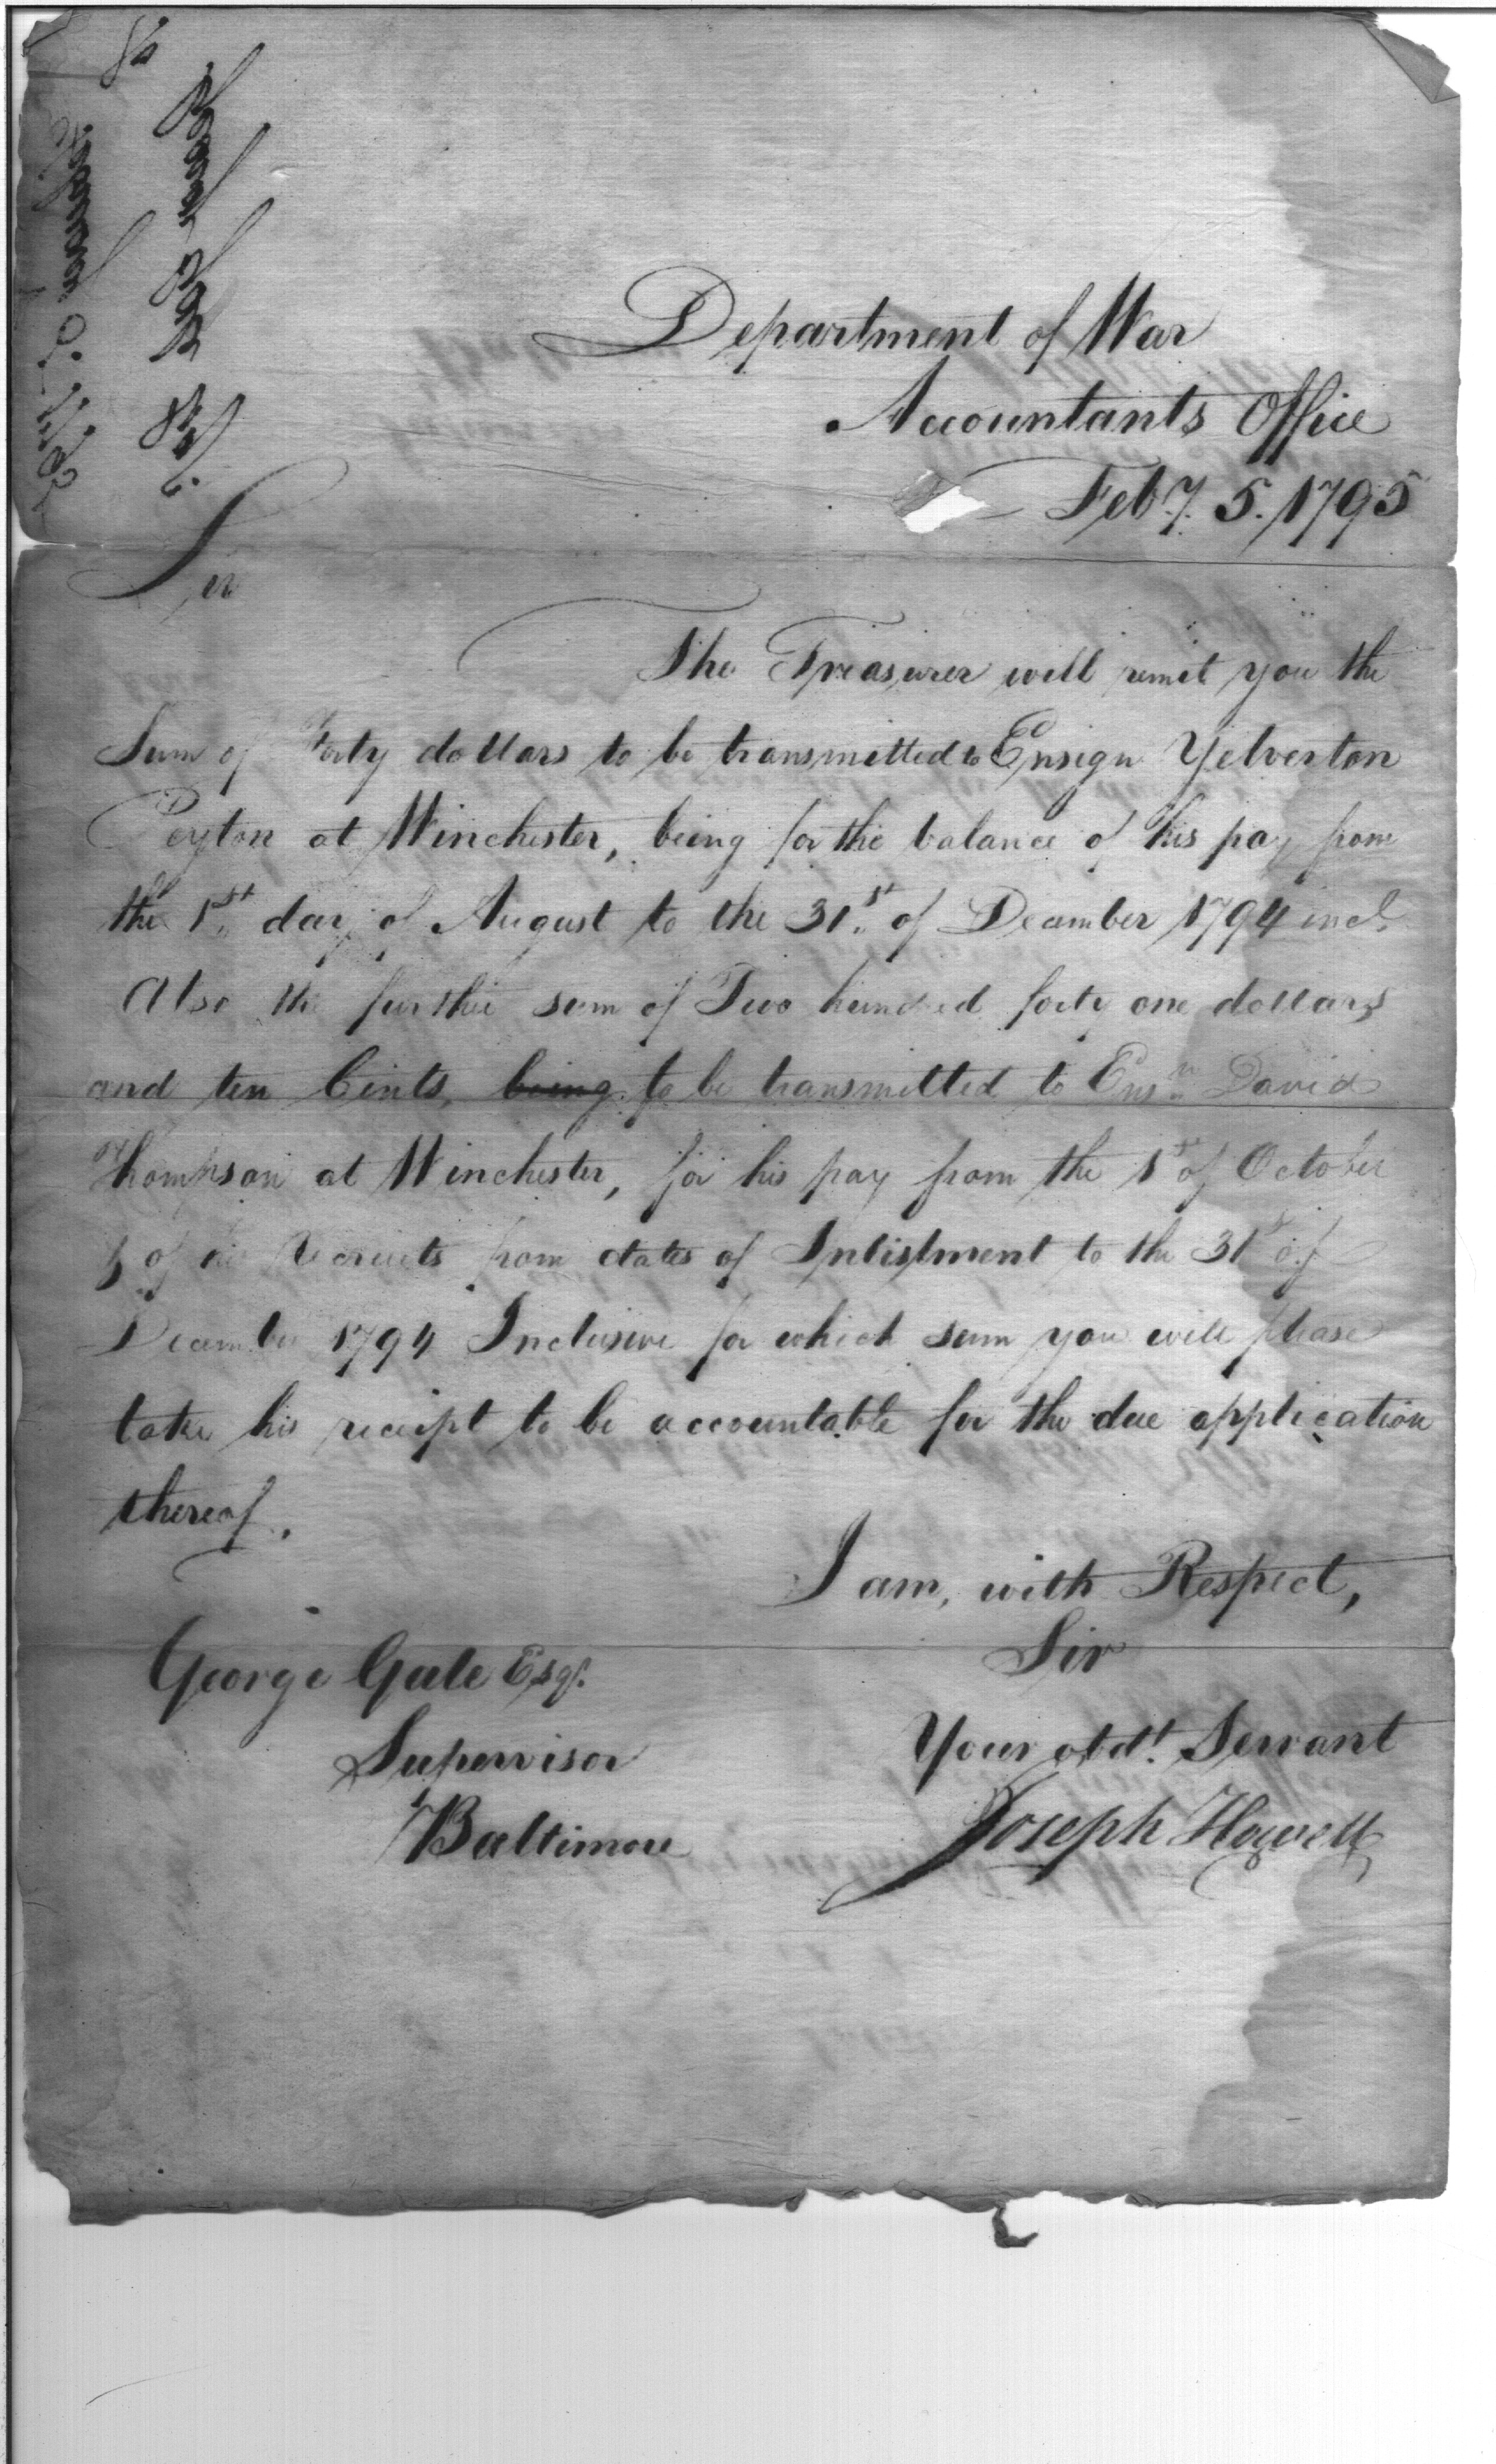 Department of War
Accountants Office
Feby. 5. 1795
Sir
The Treasurer will remit you the
Sum of Forty dollars to be transmitted to Ensign Yelverton
Peyton at Winchester, being for the balance of his pay from
the 1st day of August to the 31st of December 1794 incl.
Also the further sum of Two hundred forty one dollars
and ten Cents, being to be transmitted to Ensn. David
Thompson at Winchester, for his pay from the 1st of October
& of his Recruits from dates of Inlistment to the 31st of
December 1794 Inclusive for which sum you will please
take his receipt to be accountable for the due application
thereof.
I am, with Respect,
Sir
George Gale Esqr.
Supervisor
Baltimore
Your obdt. Servant
Joseph Howell